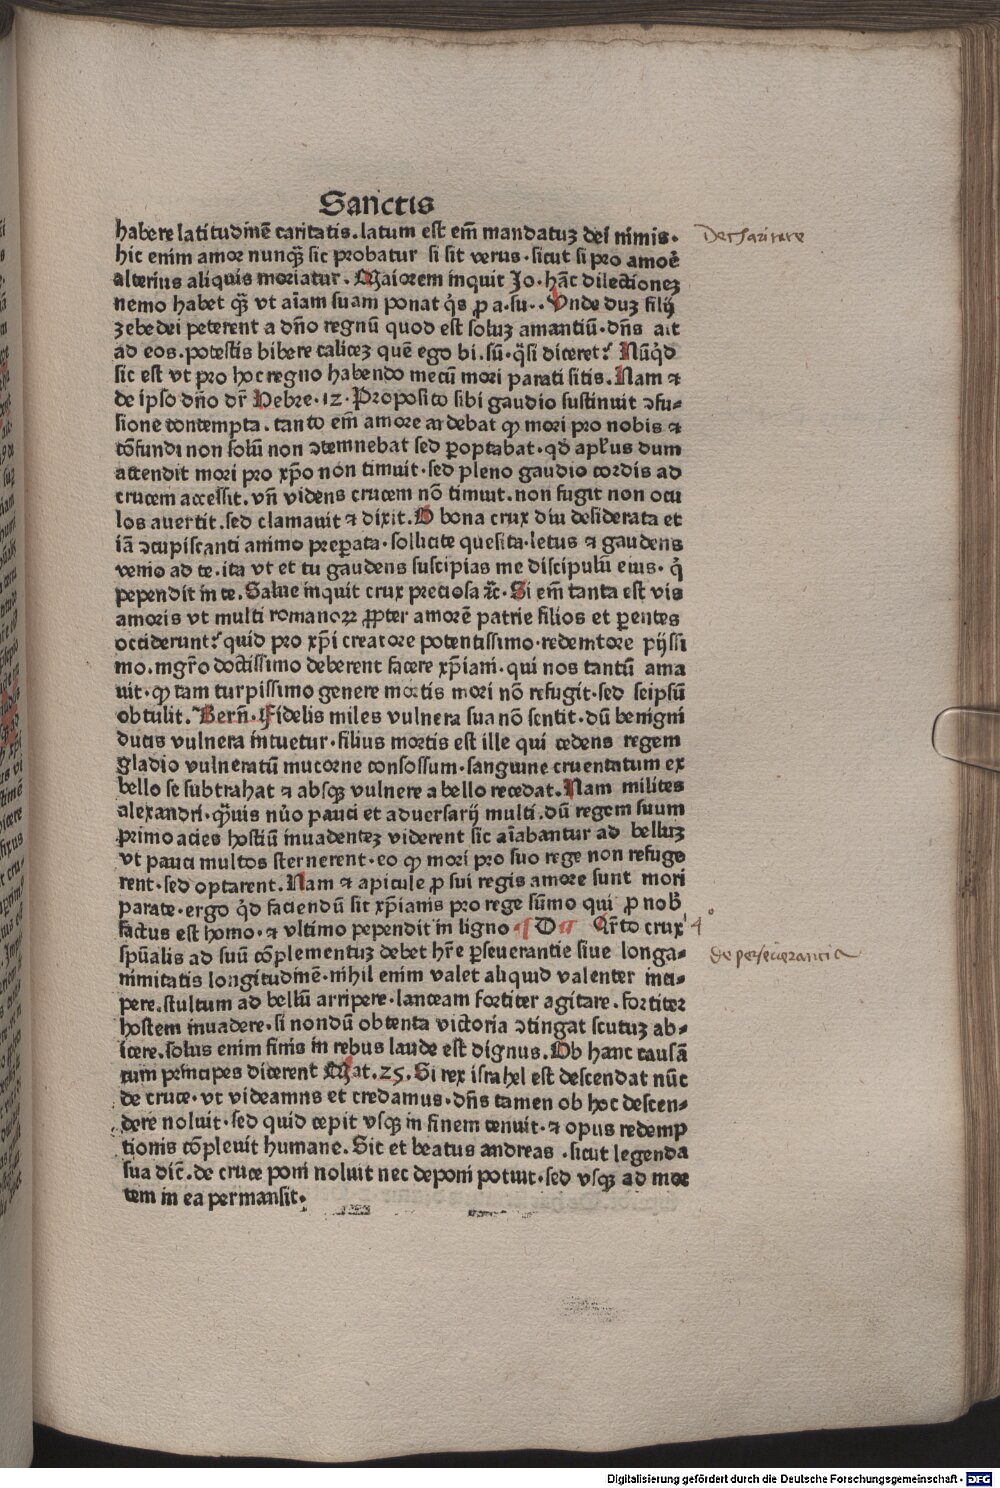 Sanctis
habere latitudinē caritatis.latum est em̄ mandatuꝫ dei nimis.
De charitate
hic enim amor nunqȝ̄ sic probatur si sit verus.sicut si pro amoē
alterius aliquis moriatur. Maiorem inquit Jo.hāc dilectionеꝫ
nemo habet qȝ̄ vt aīam suam ponat q̇s ꝓ a.su.. Vnde duꝫ filij
zebedei peterent a dn̄o regnū quod est soluꝫ amantiū.dn̄s ait
ad eos.potestis bibere caliceꝫ quē ego bi.sū.q̇si diceret? Nūq̇d
sic est vt pro hoc regno habendo mecū mori parati sitis. Nam ⁊
de ipso dn̄o dr̄ Hebre.12.Proposito sibi gaudio sustinuit ꝯfu-
sione contempta.tanto em̄ amore ardebat ꝙ mori pro nobis ⁊
cōfundi non solū non ꝯtemnebat sed ꝑoptabat.qd̄ apl'us dum
attendit mori pro xp̄o non timuit.sed pleno gaudio cordis ad
crucem accessit.vn̄ videns crucem nō timuit.non fugit non ocu
los auertit.sed clamauit ⁊ dixit.O bona crux diu desiderata et
iā ꝯcupiscanti animo preꝑata.sollicite quesita.letus ⁊ gaudens
venio ad te.ita vt et tu gaudens suscipias me discipulū eius.q̇
pependit in te.Salue inquit crux preciosa ⁊c̄.Si em̄ tanta est vis
amoris vt multi romanoꝝ ꝓpter amorē patrie filios et ꝑentes
occiderunt?quid pro xp̄i creatore potentissimo.redemtore pijssi
mo.mgr̄o doctissimo deberent facere xp̄iani.qui nos tantū ama
uit.ꝙ tam turpissimo genere mortis mori nō refugit.sed seipsū
obtulit. Bern̄.Fidelis miles vulnera sua nō sentit.dū benigni
ducis vulnera intuetur.filius mortis est ille qui cedens regem
gladio vulneratū mucorne confossum.sanguine cruentatum ex
bello se subtrahat ⁊ absqȝ vulnere a bello recedat.Nam milites
alexandri.qȝ̄uis nu̇o pauci et aduersarij multi.dū regem suum
primo acies hostiū inuadenteꝫ viderent sic aīabantur ad belluꝫ
vt pauci multos sternerent.eo ꝙ mori pro suo rege non refuge
rent.sed optarent.Nam ⁊ apicule ꝓ sui regis amore sunt mori
parate.ergo q̇d faciendū sit xp̄ianis pro rege sūmo qui ꝓ nob̄
factus est homo.⁊ vltimo pependit in ligno ¶ D ¶ Qr̄to crux
4°
sp̄ualis ad suū cōplementuꝫ debet hr̄e ꝑseuerantie siue longa-
de perseuerancia
nimitatis longitudinē.nihil enim valet aliquid valenter inci-
pere.stultum ad bellū arripere.lanceam fortiter agitare.fortiter
hostem inuadere.si nondū obtenta victoria ꝯtingat scutuꝫ ab-
icere.solus enim finis in rebus laude est dignus.Ob hanc causā
cum principes dicerent Mat.25.Si rex israhel est descendat nūc
de cruce.vt videamns et credamus.dn̄s tamen ob hoc descen-
dere noluit.sed quid cepit vsqȝ in finem tenuit.⁊ opus redemp
tionis cōpleuit humane.Sic et beatus andreas.sicut legenda
sua dic̄.de cruce poni noluit nec deponi potuit.sed vsqȝ ad mor
tem in ea permansit.
Digitalisierung gefördert durch die Deutsche Forschungsgemeinschaft - DFG